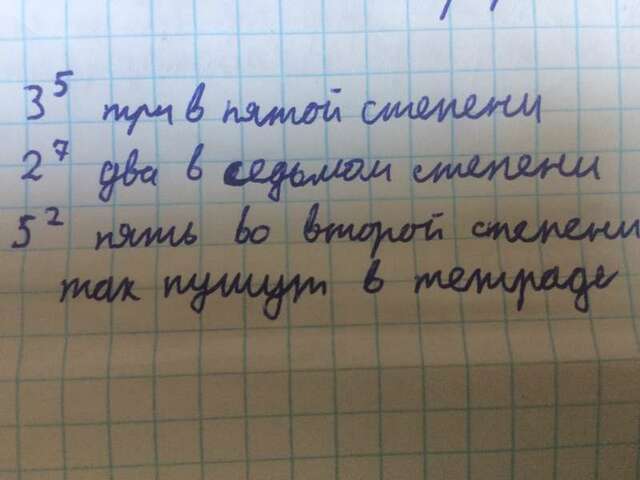 3⁵ три в пятой степени
2⁷ два в седьмой степени
5² пять во второй степени
так пишут в тетраде